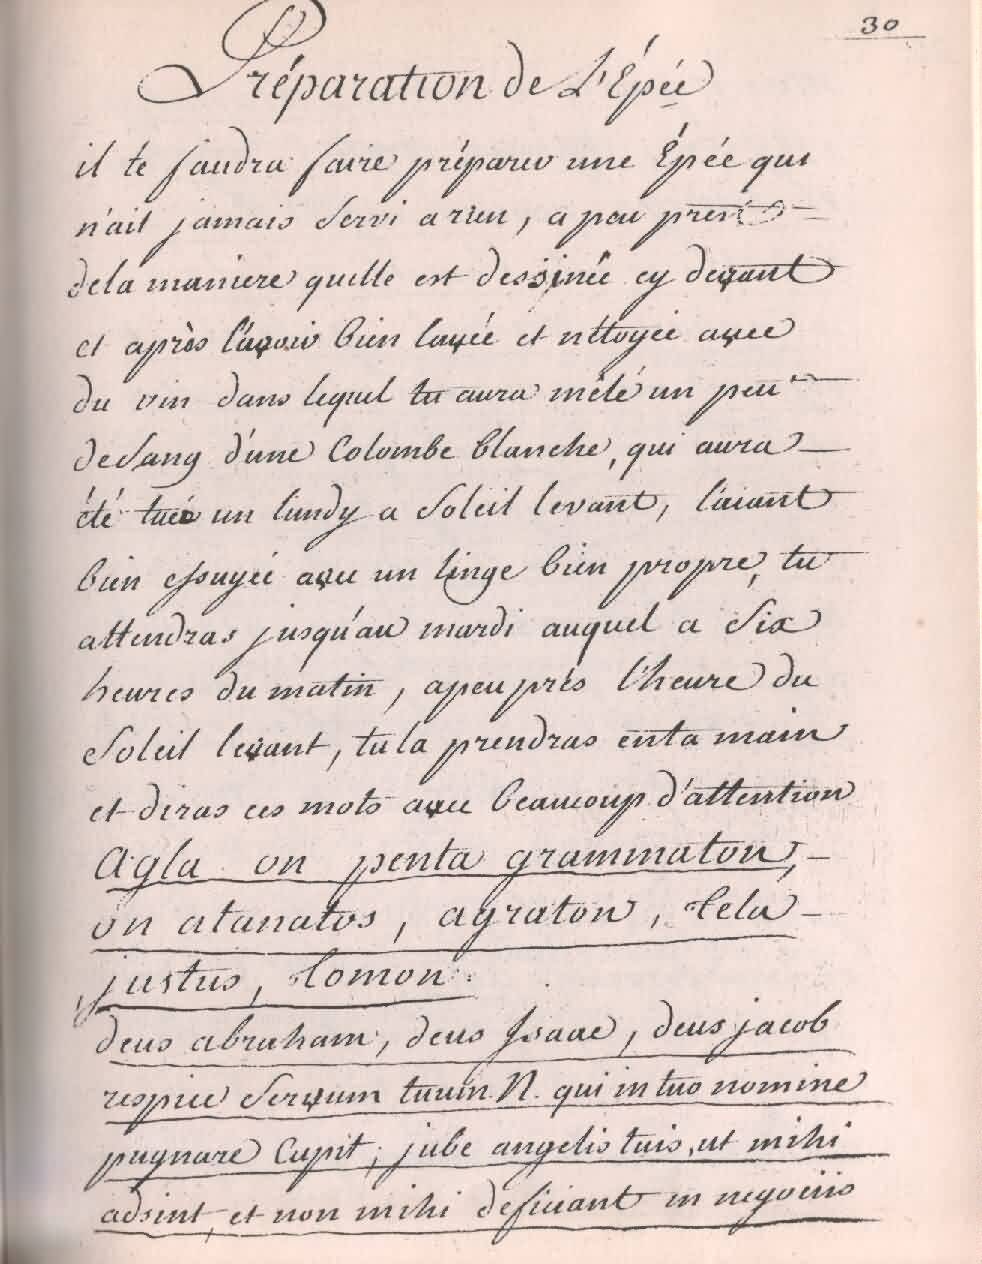 30
Préparation de L'Épée
il te faudra faire préparer une Épée qui
n'ait jamais Servi a rien, a peu prés
de la maniere quelle est dessinée cy devant
et après l'avoir bien lavée et nétoyée avec
du vin dans lequel tu aura mêlé un peu
de Sang d'une Colombe blanche, qui aura
été tuée un lundy a Soleil levant, l'aiant
bien essuyée avec un linge bien propre, tu
attendras jusqu'au mardi auquel a Six
heures du matin, apeuprès l'heure du
Soleil levant, tu la prendras en ta main
et diras ces mots avec beaucoup d'attention
Agla on penta grammaton,
on atanatos, agraton, Cela
justus, Comon
deus abraham, deus Isaac, deus jacob
respice Servum tuum N. qui in tuo nomine
pugnare Cupit; jube angelis tuis, ut mihi
adsint, et non mihi deficiant in negociis